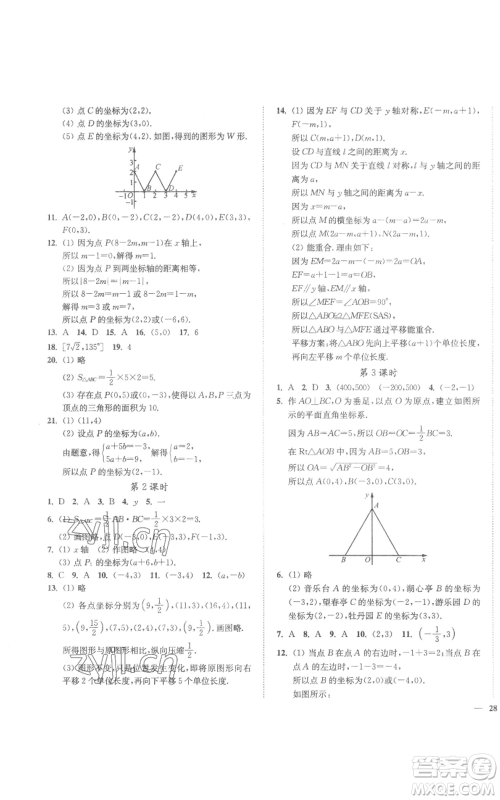 (3) 点 C 的坐标为(2,2).
(4) 点 D 的坐标为(3,0).
(5) 点 E 的坐标为(4,2). 如图,得到的图形为 W 形.
11. A(-2,0),
F(0,3).
12. (1) 因为点 P(8-2m,m-1)在 x 轴上,
所以 m-1=0,解得 m=1.
(2) 因为点 P 到两坐标轴的距离相等,
所以|8-2m|=|m-1|.
所以 8-2m=m-1 或 8-2m=1-m.
解得 m=3 或 m=7.
所以点 P 的坐标为(2,2)或(-6,6).
13. A 14. D 15. A 16. (5,0) 17. 6
18. [7√2,135°] 19. 4
20. (1) 略
(2) S△ABC=1/2×5×2=5.
(3) 点的坐标乘2后,所得的坐标为顶点的三角形的面积为 10.
21. (1) (11,4)
(2) 设点 P 的坐标为(a,b).
由题意,得{a+5b=-3, 5a+b=9. 解得{a=2, b=-1.
所以点 P 的坐标为(2,-1).
第 2 课时
1. D 2. A 3. A 4. y 5. 一
6. (1) S△ABC=1/2AB·BC=1/2×3×2=3.
7. (1) x 轴 (2) 作图略
(3) 点 P₁ 的坐标为
8. C 9. A 10. (-4,3) 11. (-3,-4) 12. (a,-b)
13. (1) 略
(2) 各点坐标分别为(9,1/2),(7,5),
(9,15/2),(7,5),(9,1/2). 画图略.
所得图形与原图形相比,纵向压缩1/2.
(3) 图形不变,只是位置发生变化,即将原图形向右平移 2 个单位长度,再向下平移 5 个单位长度.
14. (1) 因为 EF 与 CD 关于 y 轴对称,E(-m,a+1),
F(-m,1).
所以 C(m,a+1).
设 CD 与直线 l 之间的距离为 x.
因为 CD 与 MN 关于直线 l 对称,l 与 y 轴之间的距离为 a,
所以 MN 与 y 轴之间的距离为 a-x.
因为 x=m-a,
所以点 M 的横坐标为 a-(m-a)=2a-m.
所以 M(2a-m,a+1).
(2) 能重合. 理由如下:
因为 EM=2a-m-(-m)=2a=OA,
EF=a+1-1=a=OB.
EF∥y 轴,EM∥x 轴,
所以∠MEF=∠AOB=90°.
所以△ABO≌△MFE(SAS).
所以△ABO 与△MFE 能重合.
平移方案,将△ABO 向上平移(a+1)个单位长度后,再向左平移 m 个单位长度.
第 3 课时
1. A 2. D 3. (400,500) (-200,500) 4. (-2,-1)
5. 作 AO⊥BC,O 为垂足,以点 O 为原点,建立如图所示的平面直角坐标系.
因为 AB=AC=5,所以 BO=CO=1/2BC=4.
在 Rt△AOB 中,AB²=OB²+OA².
所以 OA=√(AB²-OB²)=4.
6. (1) 略
(2) 音乐台 A 的坐标为(0,4),湖心亭 B 的坐标为(-3,2),望春亭 C 的坐标为(-2,-1),游乐园 D 的坐标为(2,-2),牡丹园 E 的坐标为(3,3).
7. A 8. A 9. A 10. (2,3) 11. (-1/3,3)
12. (1) 当点 B 在点 A 的右边时,-1+3=2;当点 B 在点 A 的左边时,-1-3=-4.
所以点 B 的坐标为(2,0)或(-4,0).
如图所示:
— 28
zyjl.cn